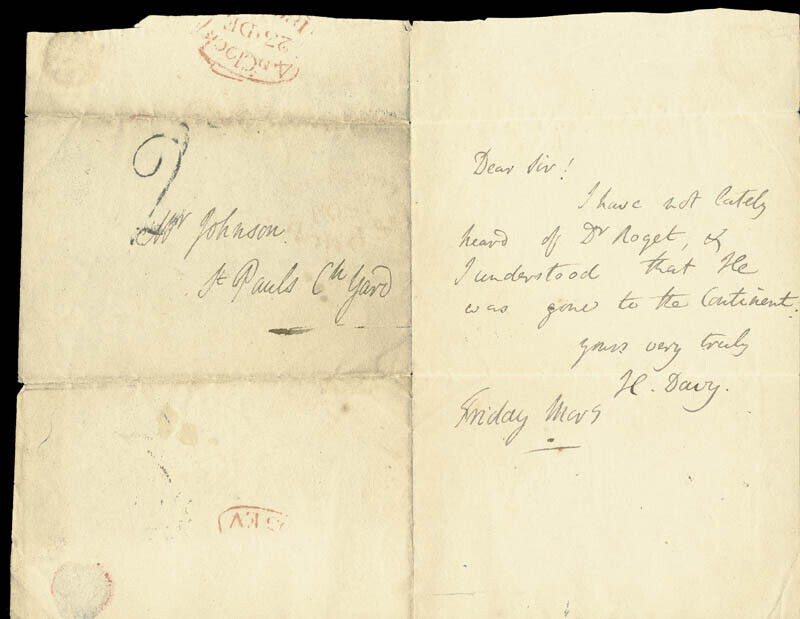 4 o'Clock
23. DE
2
Mr Johnson.
St Pauls Ch Yard
EV
Dear Sir!
I have not lately
heard of Dr Roget, &
I understood that He
was gone to the Continent.
yours very truly
H. Davy.
Friday Mor